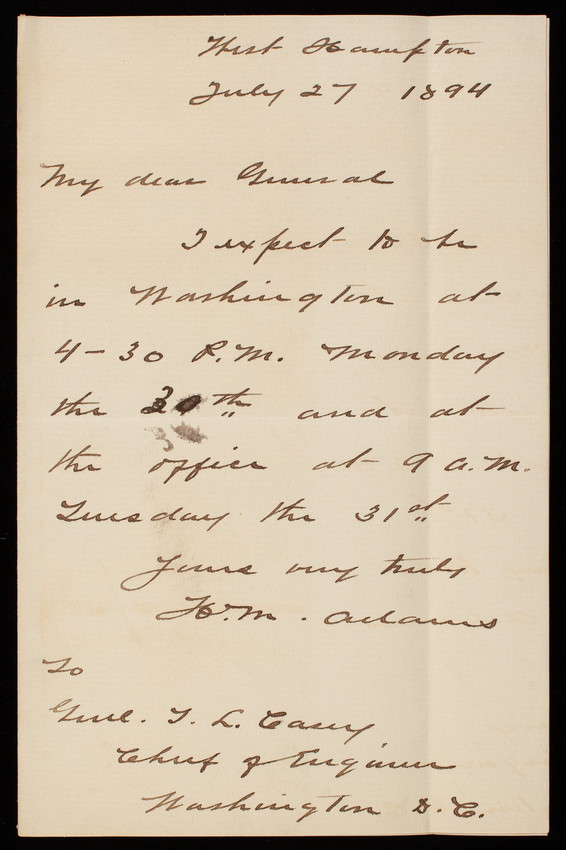 West Hampton
July 27 1894
My dear General
I expect to be
in Washington at
4-30 P.M. Monday
the 30th and at
the office at 9 a.m.
Tuesday the 31st
Yours very truly
H. M. Adams
To
Genl. T. L. Casey
Chief of Engineers
Washington D.C.